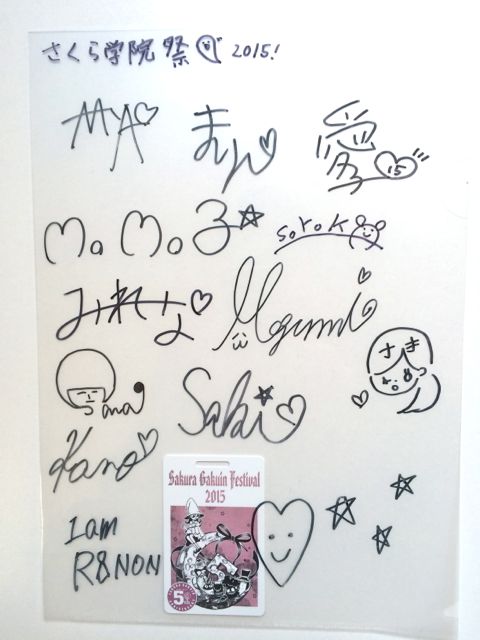 さくら学院祭 2015!
MA
まりん
愛子 15
MoMo子
soyoKa
みれな
Megumi
さき
Sana
Saki
Kano
Sakura Gakuin Festival
2015
I am
R8NON
5th